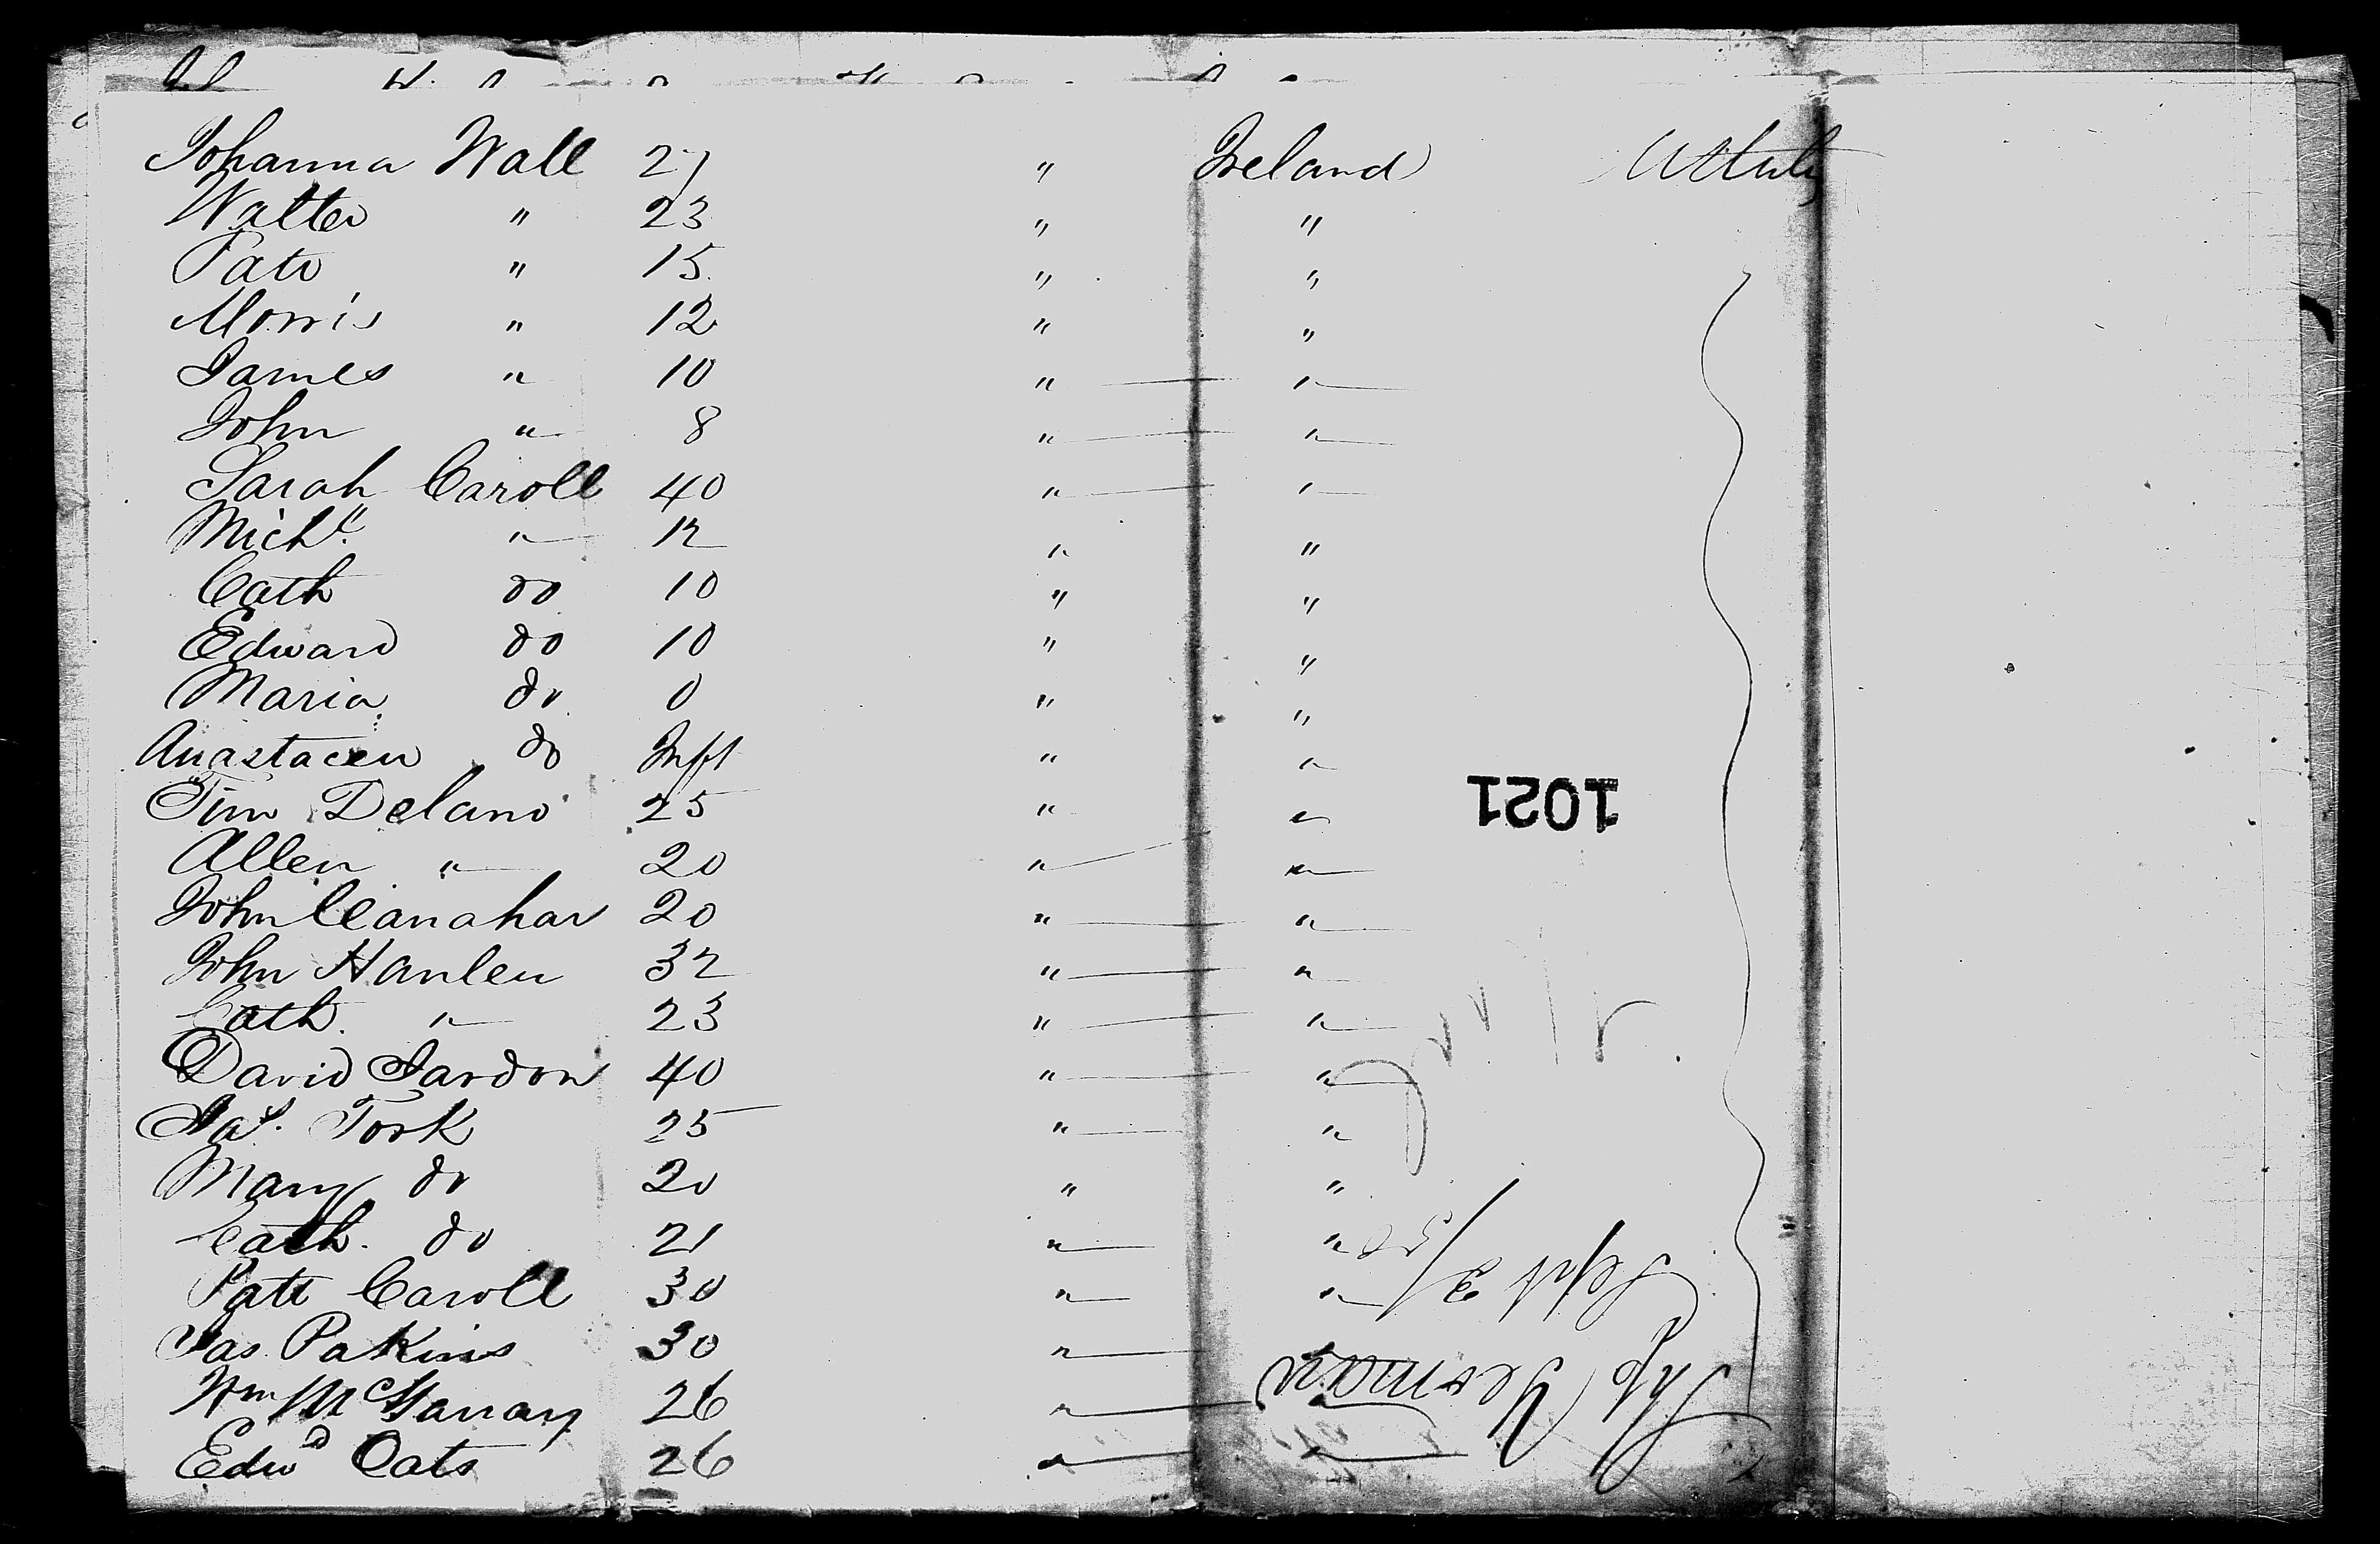 Johanna Wall 27 " Ireland
Walter " 23 " "
Patt " 15 " "
Morris " 12 " "
James " 10 " "
John " 8 " "
Sarah Caroll 40 " "
Michl. " 12 " "
Cath do 10 " "
Edward do 10 " "
Maria do 0 " "
Anastacen do Inft " "
Tim Delano 25 " "
Allen " 20 " "
John Clanahar 20 " "
John Hanlen 32 " "
Cath. " 23 " "
David Jardon 40 " "
Jas. Tork 25 " "
Mary do 20 " "
Cath. do 21 " "
Patt Caroll 30 " "
Jas. Pakins 30 "
Wm 26 " "
Edwd Oats 26 " "
1021
Ship German
Sept 3/50